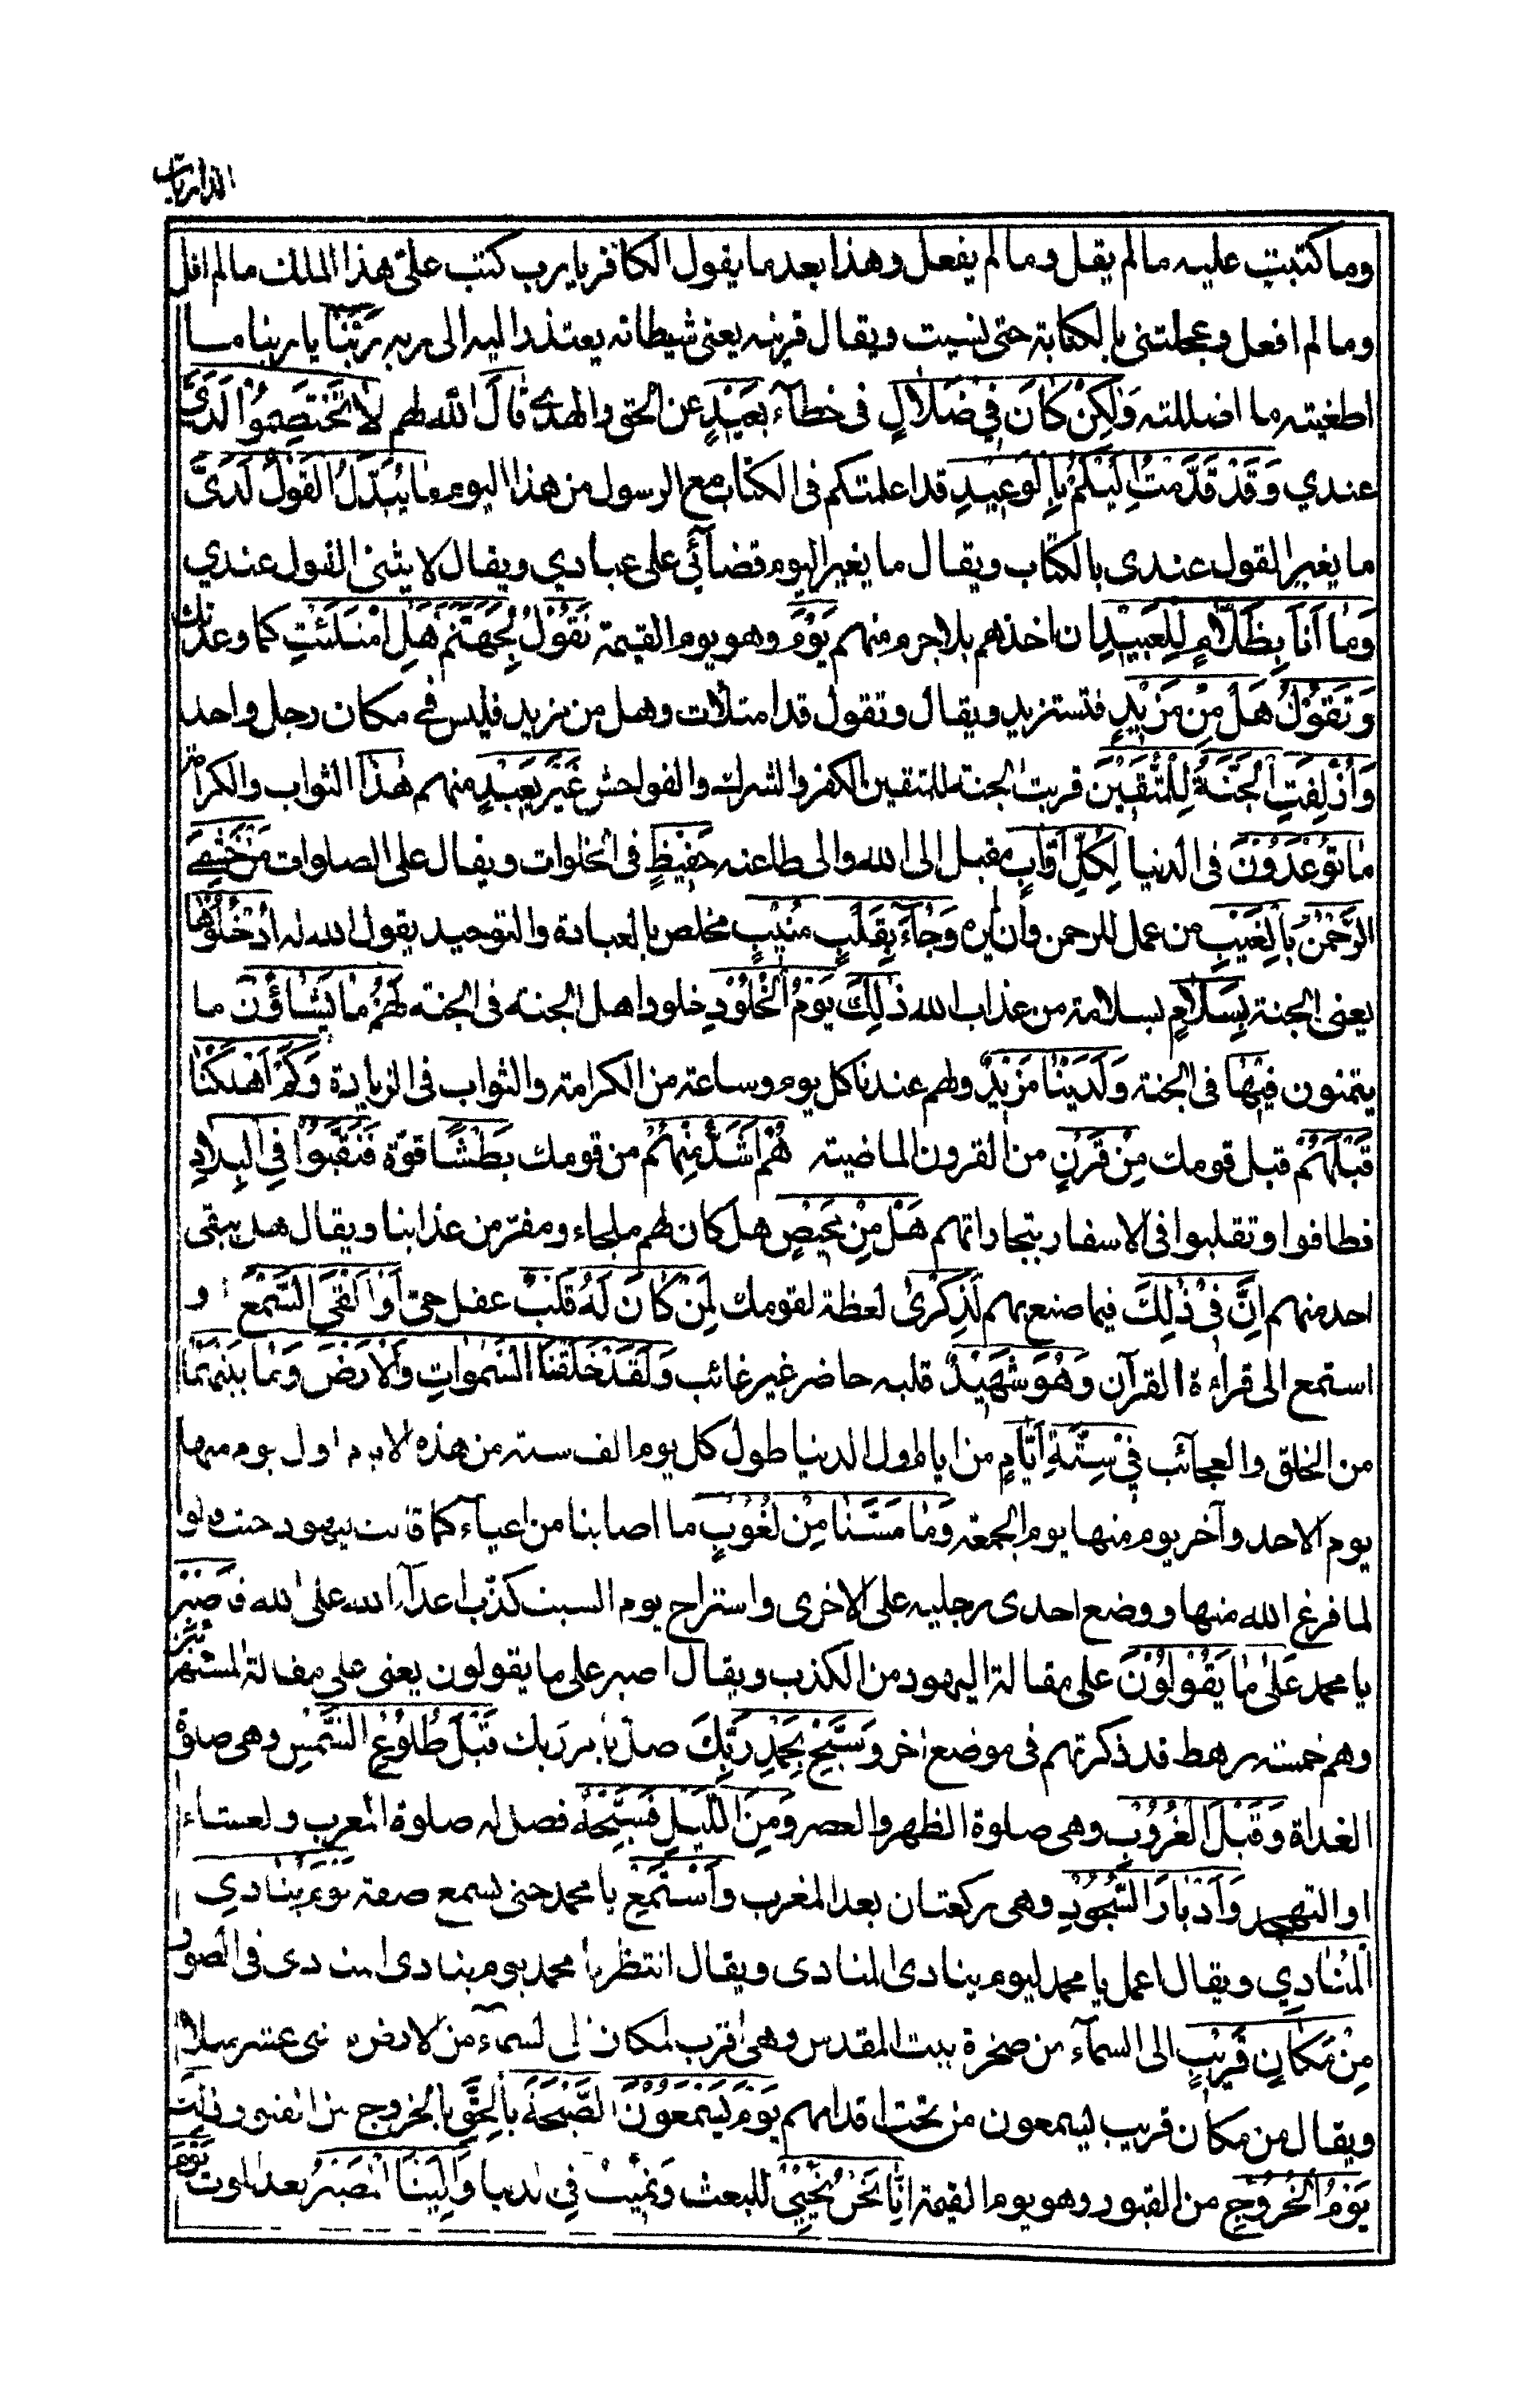 الذاريات
وما كتبت عليه ما لم يقل وما لم يفعل وهذا بعد ما يقول الكافر يا رب كتب على هذا الملك ما لم اقل
وما لم افعل وعجلتنى بالكتابة حتى نسيت ويقال قرينه يعنى شيطانه يعتذر اليه الى ربه رَبَّنَا يا ربنا مــا
اطغيته ما اضللته وَلٰكِنْ كَانَ فِي ضَلَالٍ فى خطآء بَعِيدٍ عن الحق والهدى قَالَ الله لهم لَا تَخْتَصِمُوا لَدَيَّ
عندي وَقَدْ قَدَّمْتُ اِلَيْكُمْ بِالْوَعِيدِ قد اعلمتكم فى الكتاب مع الرسول من هذا اليوم مَا يُبَدَّلُ الْقَوْلُ لَدَيَّ
ما يغير القول عندى بالكتاب ويقال ما يغير اليوم قضآئي على عبادي ويقال لا يثنى القول عندي
وَمَا أَنَا بِظَلَّامٍ لِلْعَبِيدِ ان اخذهم بلا جرم منهم يَوْمَ وهو يوم القيمة نَقُولُ لِجَهَنَّمَ هَلِ امْتَلَئْتِ كما وعدتك
وَتَقُولُ هَلْ مِنْ مَزِيدٍ فتستزيد ويقال وتقول قد امتلات وهل من مزيد فليس فى مكان رجل واحد
وَأُزْلِفَتِ الْجَنَّةُ لِلْمُتَّقِينَ قربت الجنة للمتقين الكفر والشرك والفواحش غَيْرَ بَعِيدٍ منهم هٰذَا الثواب والكرامة
مَا تُوعَدُونَ فى الدنيا لِكُلِّ أَوَّابٍ مقبل الى الله والى طاعته حَفِيظٍ فى الخلوات ويقال على الصلوات مَنْ خَشِيَ
الرَّحْمٰنَ بِالْغَيْبِ من عمل للرحمن وان لم يره وَجَآءَ بِقَلْبٍ مُنِيبٍ مخلص بالعبادة والتوحيد يقول الله له ادْخُلُوهَا
يعنى الجنة بِسَلَامٍ بسلامة من عذاب الله ذٰلِكَ يَوْمُ الْخُلُودِ خلود اهل الجنة فى الجنة لَهُمْ مَا يَشَاؤُنَ ما
يتمنون فِيهَا فى الجنة وَلَدَيْنَا مَزِيدٌ ولهم عندنا كل يوم وساعة من الكرامة والثواب فى الزيادة وَكَمْ أَهْلَكْنَا
قَبْلَهُمْ قبل قومك مِنْ قَرْنٍ من القرون الماضية هُمْ أَشَدُّ مِنْهُمْ من قومك بَطْشًا قوّة فَنَقَّبُوا فِي الْبِلَادِ
فطافوا وتقلبوا فى الاسفار بتجاراتهم هَلْ مِنْ مَحِيصٍ هل كان لهم ملجاء ومفرّ من عذابنا ويقال هل يبقى
احد منهم اِنَّ فِي ذٰلِكَ فيما صنع بهم لَذِكْرٰى لعظة لقومك لِمَنْ كَانَ لَهُ قَلْبٌ عقل حىّ أَوْ أَلْقَى السَّمْعَ و
استمع الى قراءة القرآن وَهُوَ شَهِيدٌ قلبه حاضر غير غائب وَلَقَدْ خَلَقْنَا السَّمٰوَاتِ وَالْأَرْضَ وَمَا بَيْنَهُمَا
من الخلق والعجآئب فِي سِتَّةِ أَيَّامٍ من ايام اول الدنيا طول كل يوم الف سنة من هذه الايام اول يوم منها
يوم الاحد وآخر يوم منها يوم الجمعة وَمَا مَسَّنَا مِنْ لُغُوبٍ ما اصابنا من اعيآء كما قالت اليهود حيث قالوا
لما فرغ الله منها ووضع احدى رجليه على الاخرى واستراح يوم السبت كذّب اعدآء الله على الله فَاصْبِرْ
يا محمد عَلٰى مَا يَقُولُونَ على مقالة اليهود من الكذب ويقال اصبر على ما يقولون يعنى على مقالة المستهزئين
وهم خمسة رهط قد ذكرتهم فى موضع اخر وَسَبِّحْ بِحَمْدِ رَبِّكَ صل بامر ربك قَبْلَ طُلُوعِ الشَّمْسِ وهى صلوة
الغداة وَقَبْلَ الْغُرُوبِ وهى صلوة الظهر والعصر وَمِنَ اللَّيْلِ فَسَبِّحْهُ فصل له صلوة المغرب والعشاء
او التهجد وَأَدْبَارَ السُّجُودِ وهى ركعتان بعد المغرب وَاسْتَمِعْ يا محمد حتى تسمع صفة يَوْمَ يُنَادِي
الْمُنَادِي ويقال اعمل يا محمد ليوم ينادى المنادى ويقال انتظر يا محمد يوم ينادى المنادى فى الصور
مِنْ مَكَانٍ قَرِيبٍ الى السمآء من صخرة بيت المقدس وهى اقرب المكان الى السمآء من الارض باثنى عشر ميلا
ويقال من مكان قريب يسمعون من تحت اقدامهم يَوْمَ يَسْمَعُونَ الصَّيْحَةَ بِالْحَقِّ بالخروج من القبور ذٰلِكَ
يَوْمُ الْخُرُوجِ من القبور وهو يوم القيمة اِنَّا نَحْنُ نُحْيِي للبعث وَنُمِيتُ فى الدنيا وَاِلَيْنَا الْمَصِيرُ بعد الموت يَوْمَ